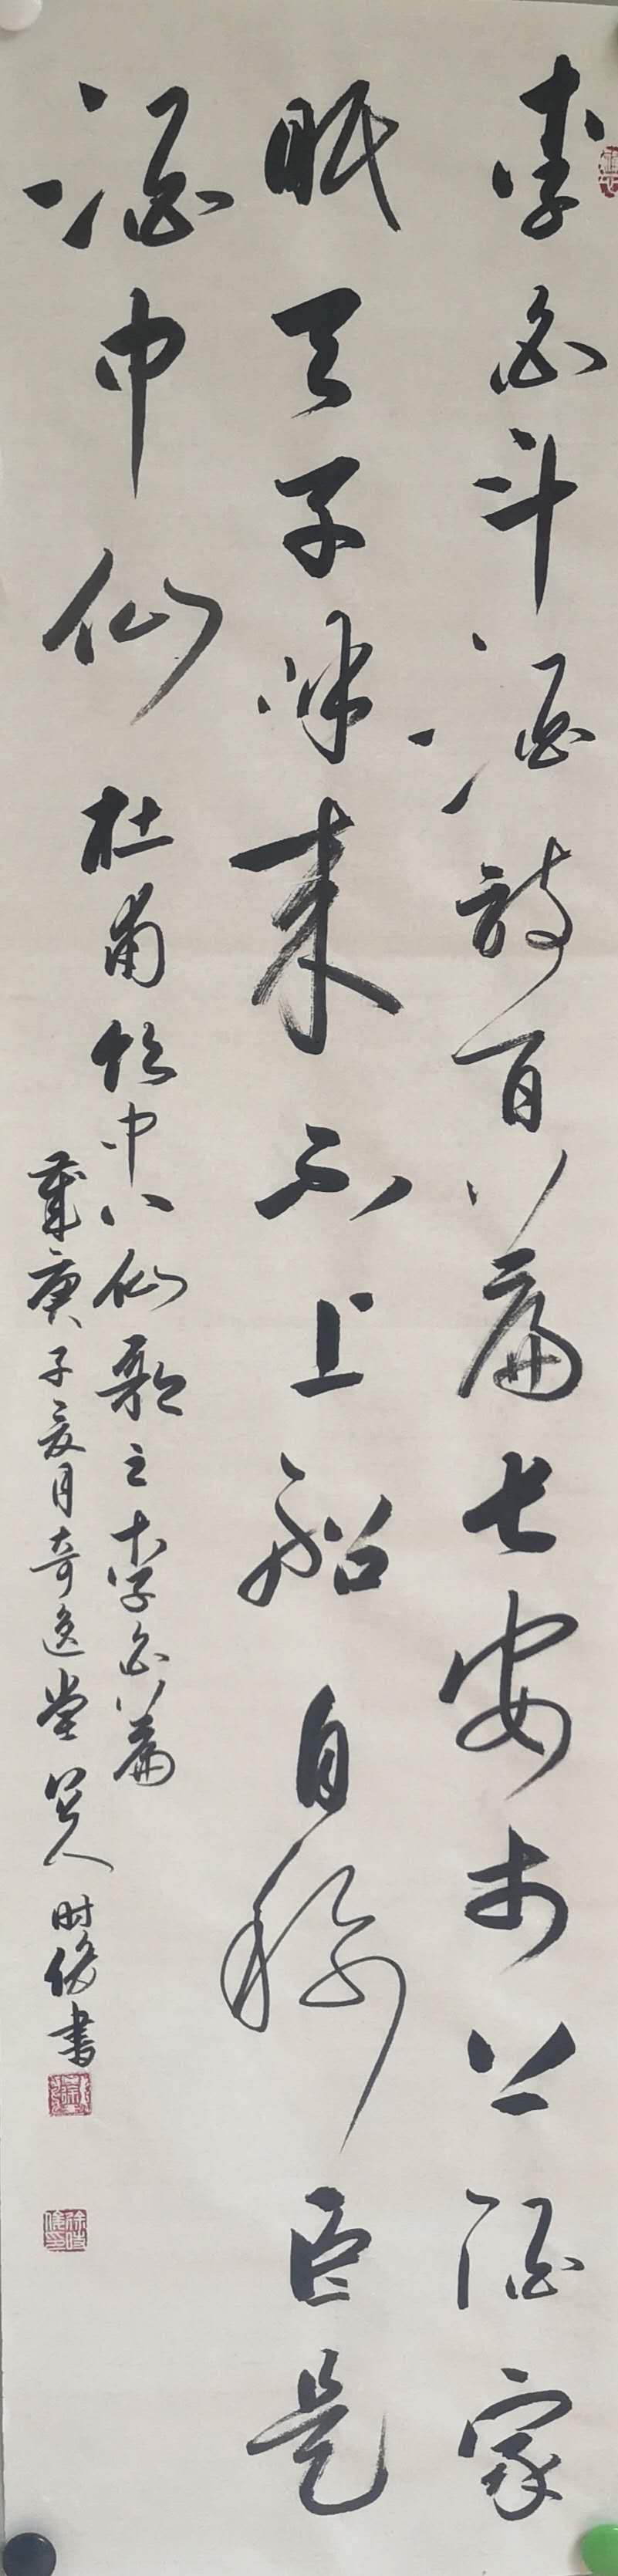 李白斗酒詩百篇长安市上酒家
眠天子呼来不上船自稱臣是
酒中仙
杜甫飲中八仙歌之李白篇
歲庚子夏月奇逸堂人时俊書